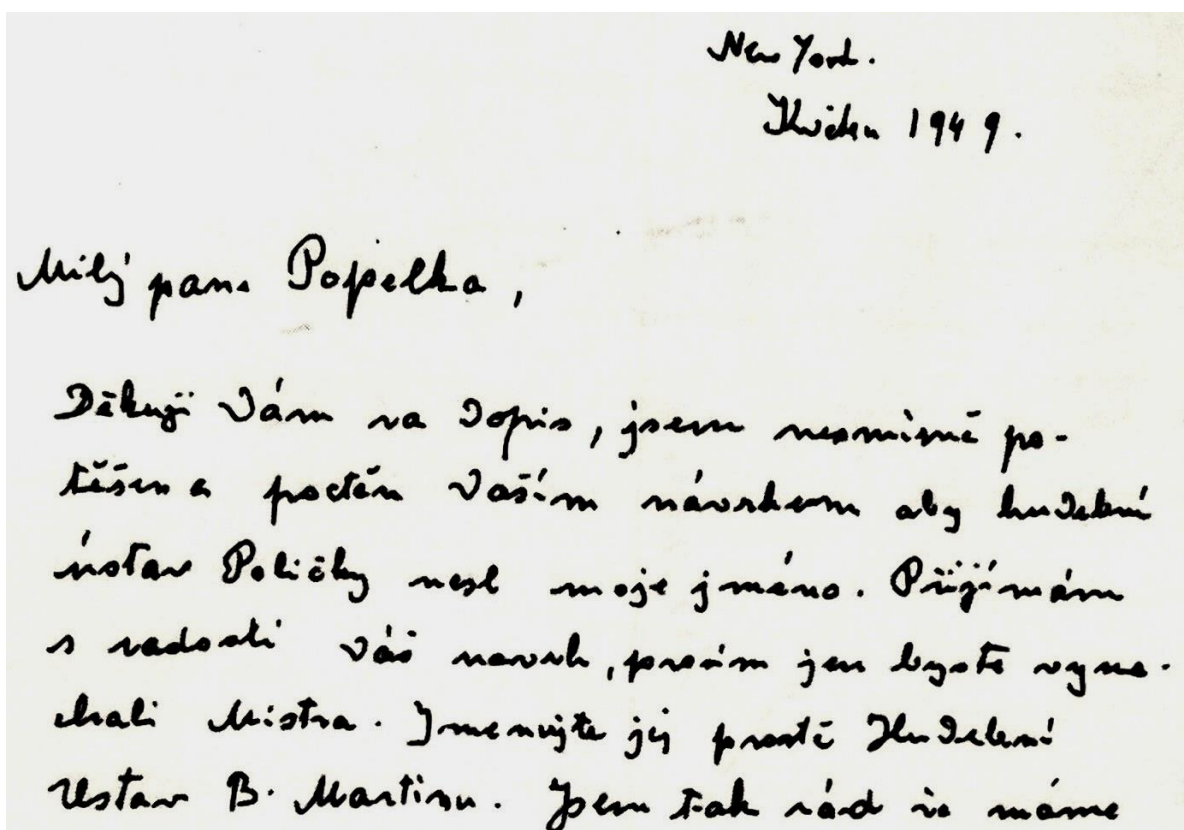 New York.
Květen 1949.
Milý pane Popelka,
Děkuji Vám za dopis, jsem nesmírně po-
těšen a poctěn Vaším návrhem aby hudební
ústav Poličky nesl moje jméno. Přijímám
s radostí Váš navrh, prosím jen byste vyne-
chali Mistra. Jmenujte jej prostě Hudební
Ustav B. Martinu. Jsem tak rád že máme